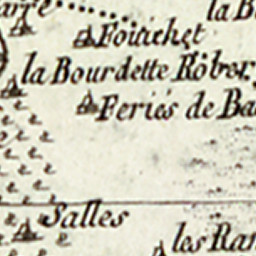 la B
Foitichet
la Bourdette Rober
Feries de Ba
Salles
les Ran